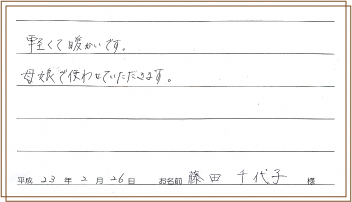 軽くて暖かいです。
母娘で使わせていただきます。
平成 23 年 2 月 26 日 お名前 藤田 千代子 様